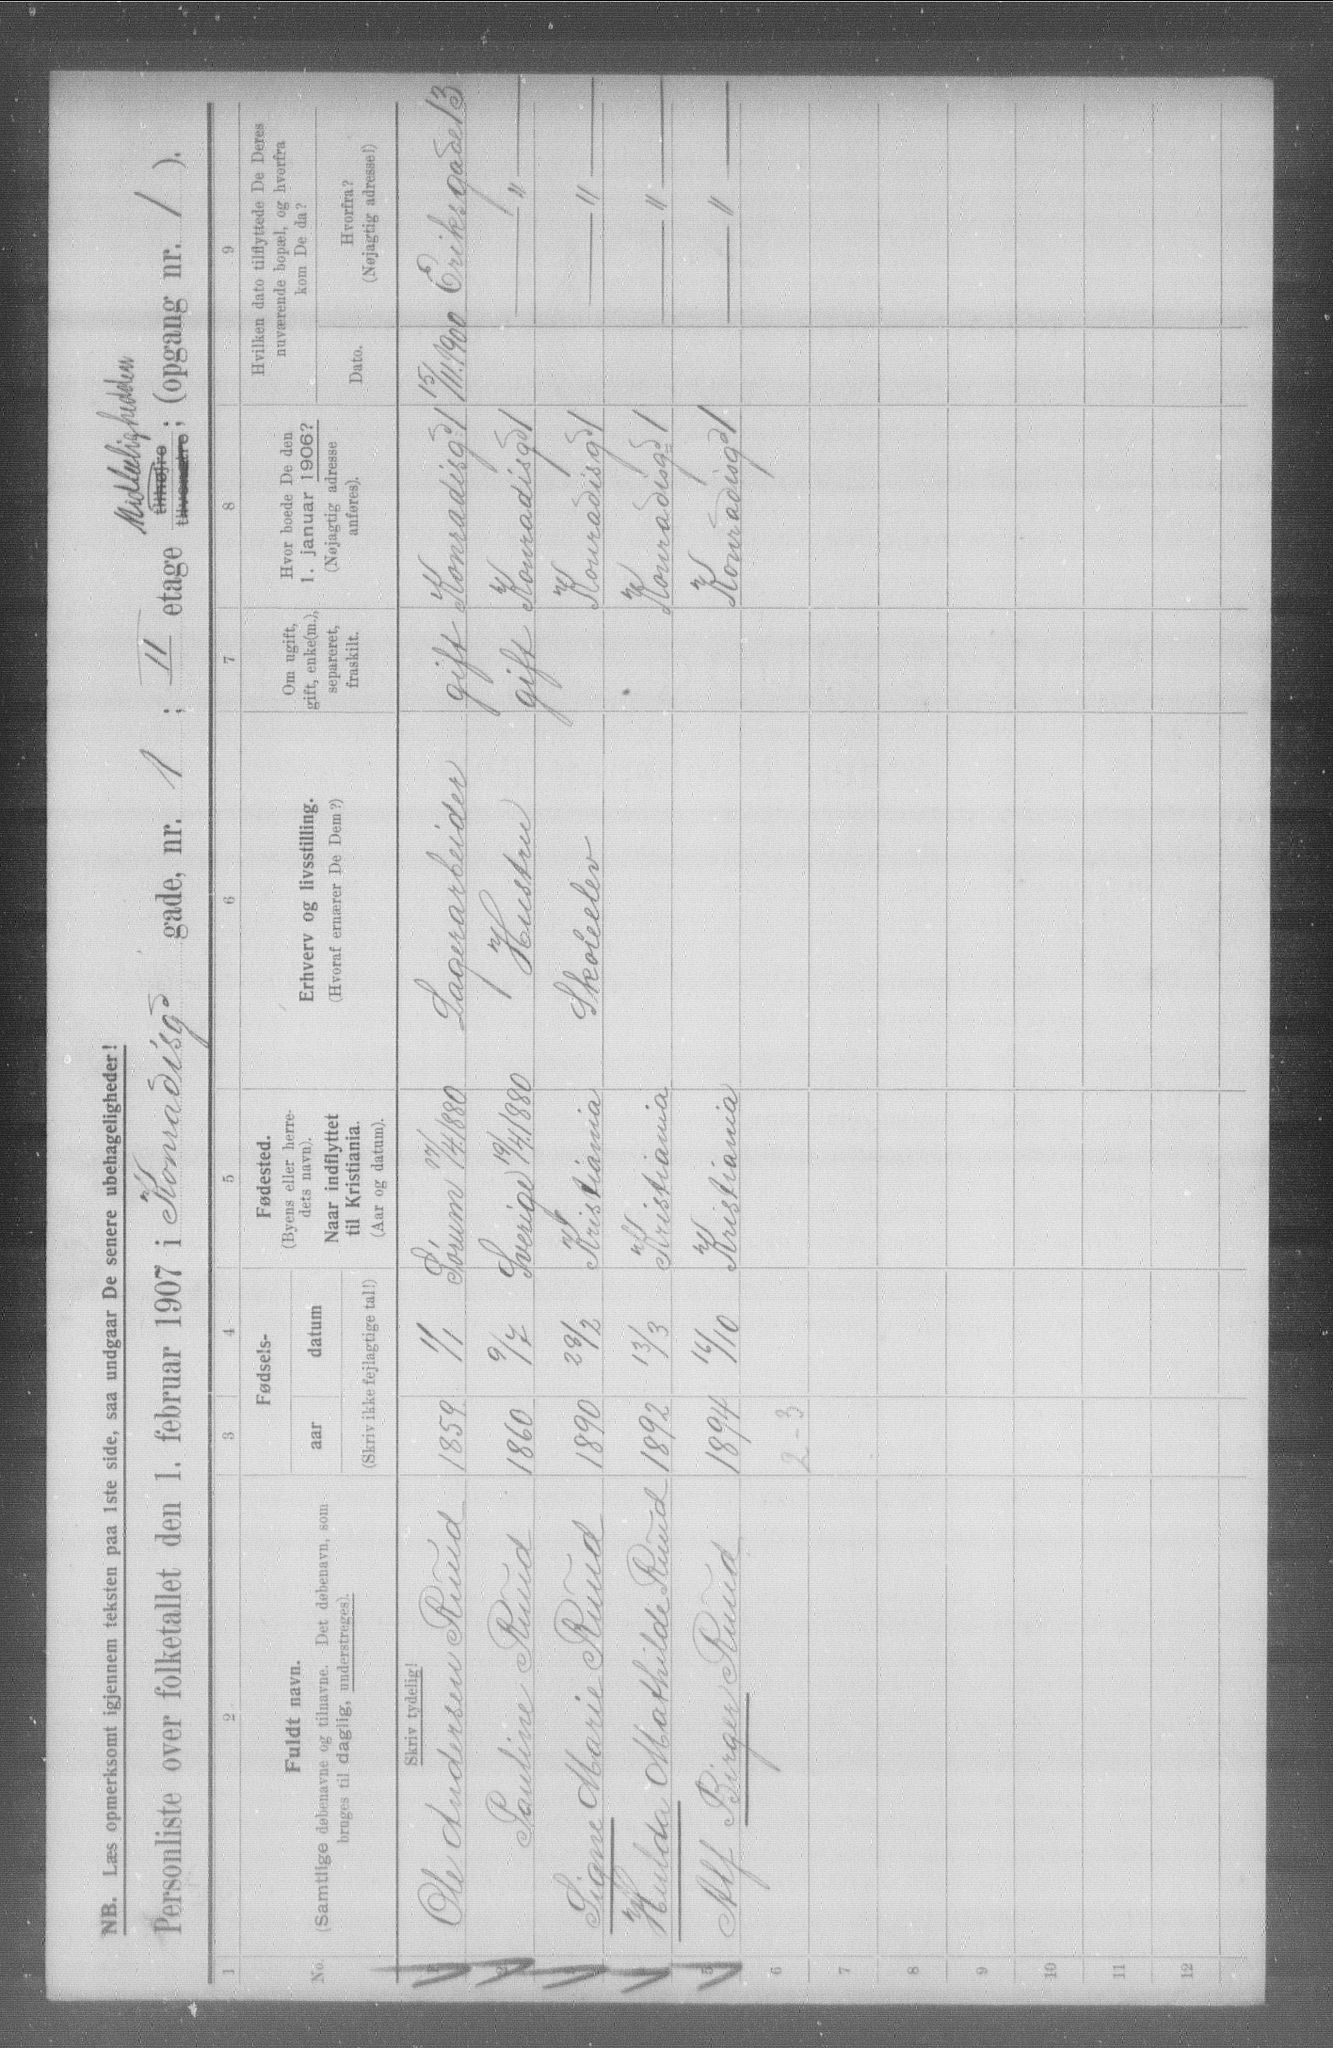 NB. Læs opmerksomt igjennem teksten paa 1ste side, saa undgaar De senere ubehageligheder!
Personliste over folketallet den 1. februar 1907 i Konradisgd gade, nr. 1 ; II etage Midtleiligheden tilhøjre tilvenstre ; (opgang nr. 1 ).
1 2 3 4 5 6 7 8 9
No. Fuldt navn. (Samtlige døbenavne og tilnavne. Det døbenavn, som bruges til daglig, understreges).
Fødsels- aar datum (Skriv ikke fejlagtige tal!)
Fødested. (Byens eller herredets navn). Naar indflyttet til Kristiania. (Aar og datum).
Erhverv og livsstilling. (Hvoraf ernærer De Dem?)
Om ugift, gift, enke(m.), separeret, fraskilt.
Hvor boede De den 1. januar 1906? (Nøjagtig adresse anføres).
Hvilken dato tilflyttede De Deres nuværende bopæl, og hvorfra kom De da?
Dato. Hvorfra? (Nøjagtig adresse!)
Skriv tydelig!
1 Ole Andersen Ruud 1859 1/1 Sørum 17/4 1880 Lagerarbeider gift Konradisgd 1 15/11.1900 Eriksgade 13
2 Pauline Ruud 1860 9/7 Sverige 19/4.1880 Hustru gift Konradisgd 1 — " —
3 Signe Marie Ruud 1890 28/2 Kristiania Skoleelev Konradisgd 1 — " —
4 Hulda Mathilde Ruud 1892 13/3 Kristiania Konradisgd 1 — " —
5 Alf Birger Ruud 1894 16/10 Kristiania Konradisgd 1 — " —
6 2-3
7
8
9
10
11
12